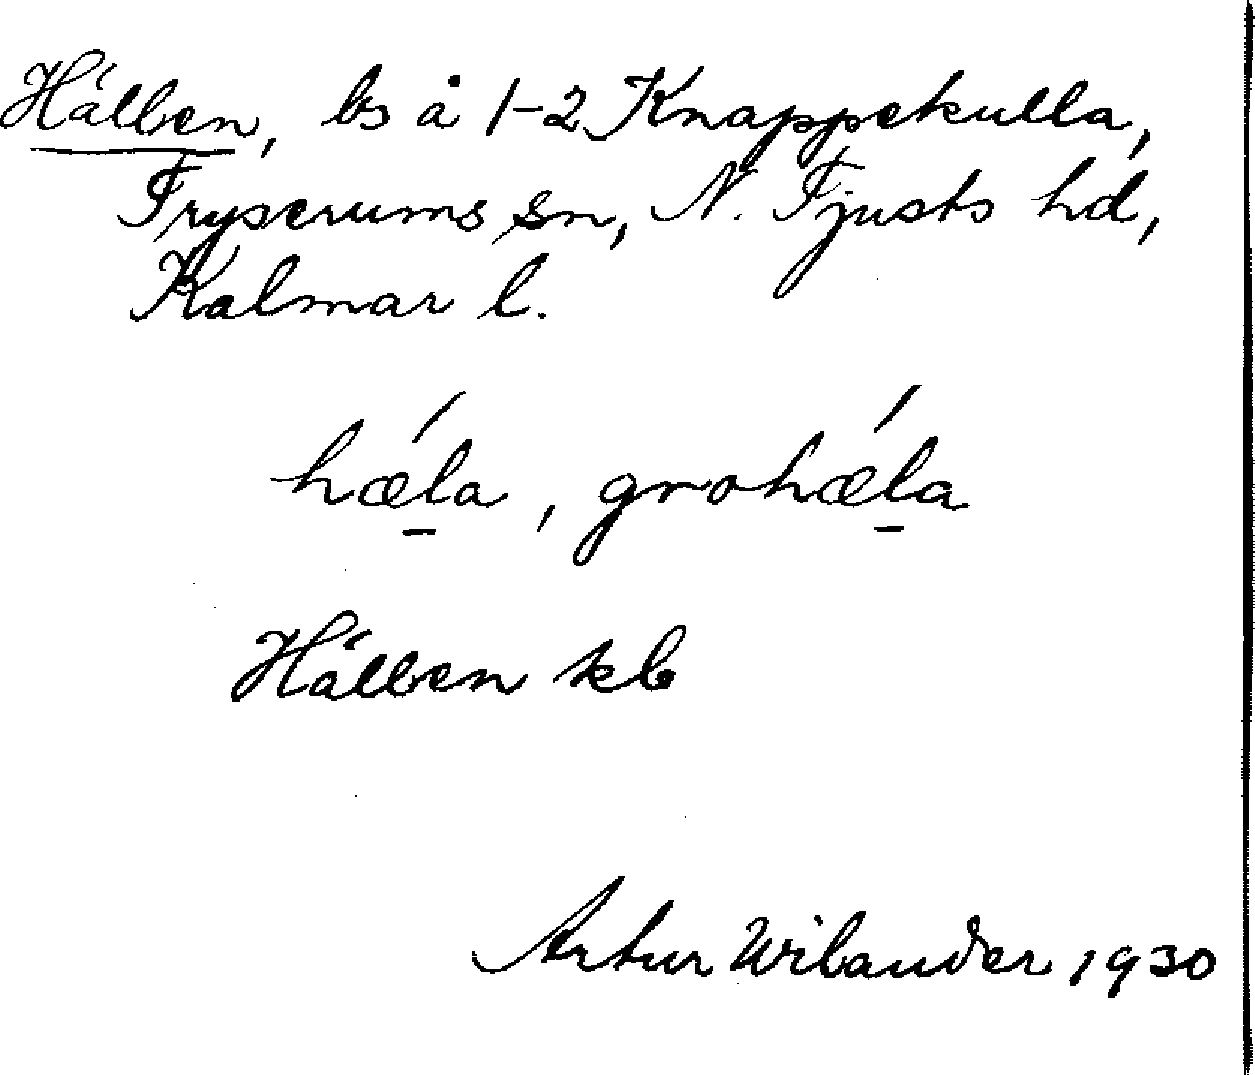 Hálben, bs å 1-2 Knappekulla,
Fryserums sn, N. Tjusts hd,
Kalmar l.
hǽla, grohǽla
Hálben kb
Artur Wilander 1930